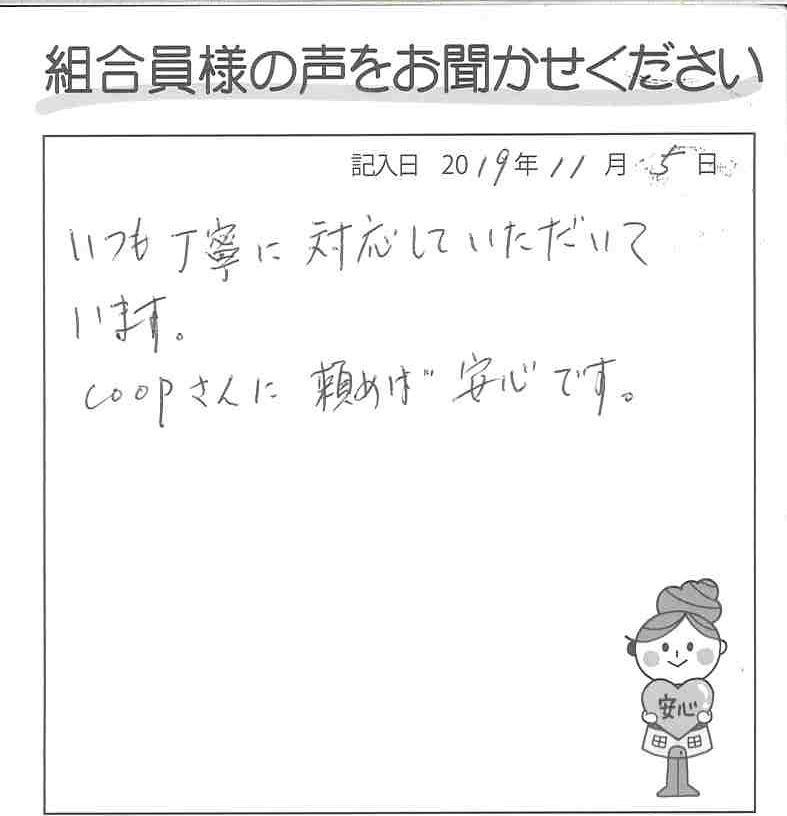 組合員様の声をお聞かせください
記入日 2019年11月5日
いつも丁寧に対応していただいて
います。
coopさんに頼めば安心です。
安心